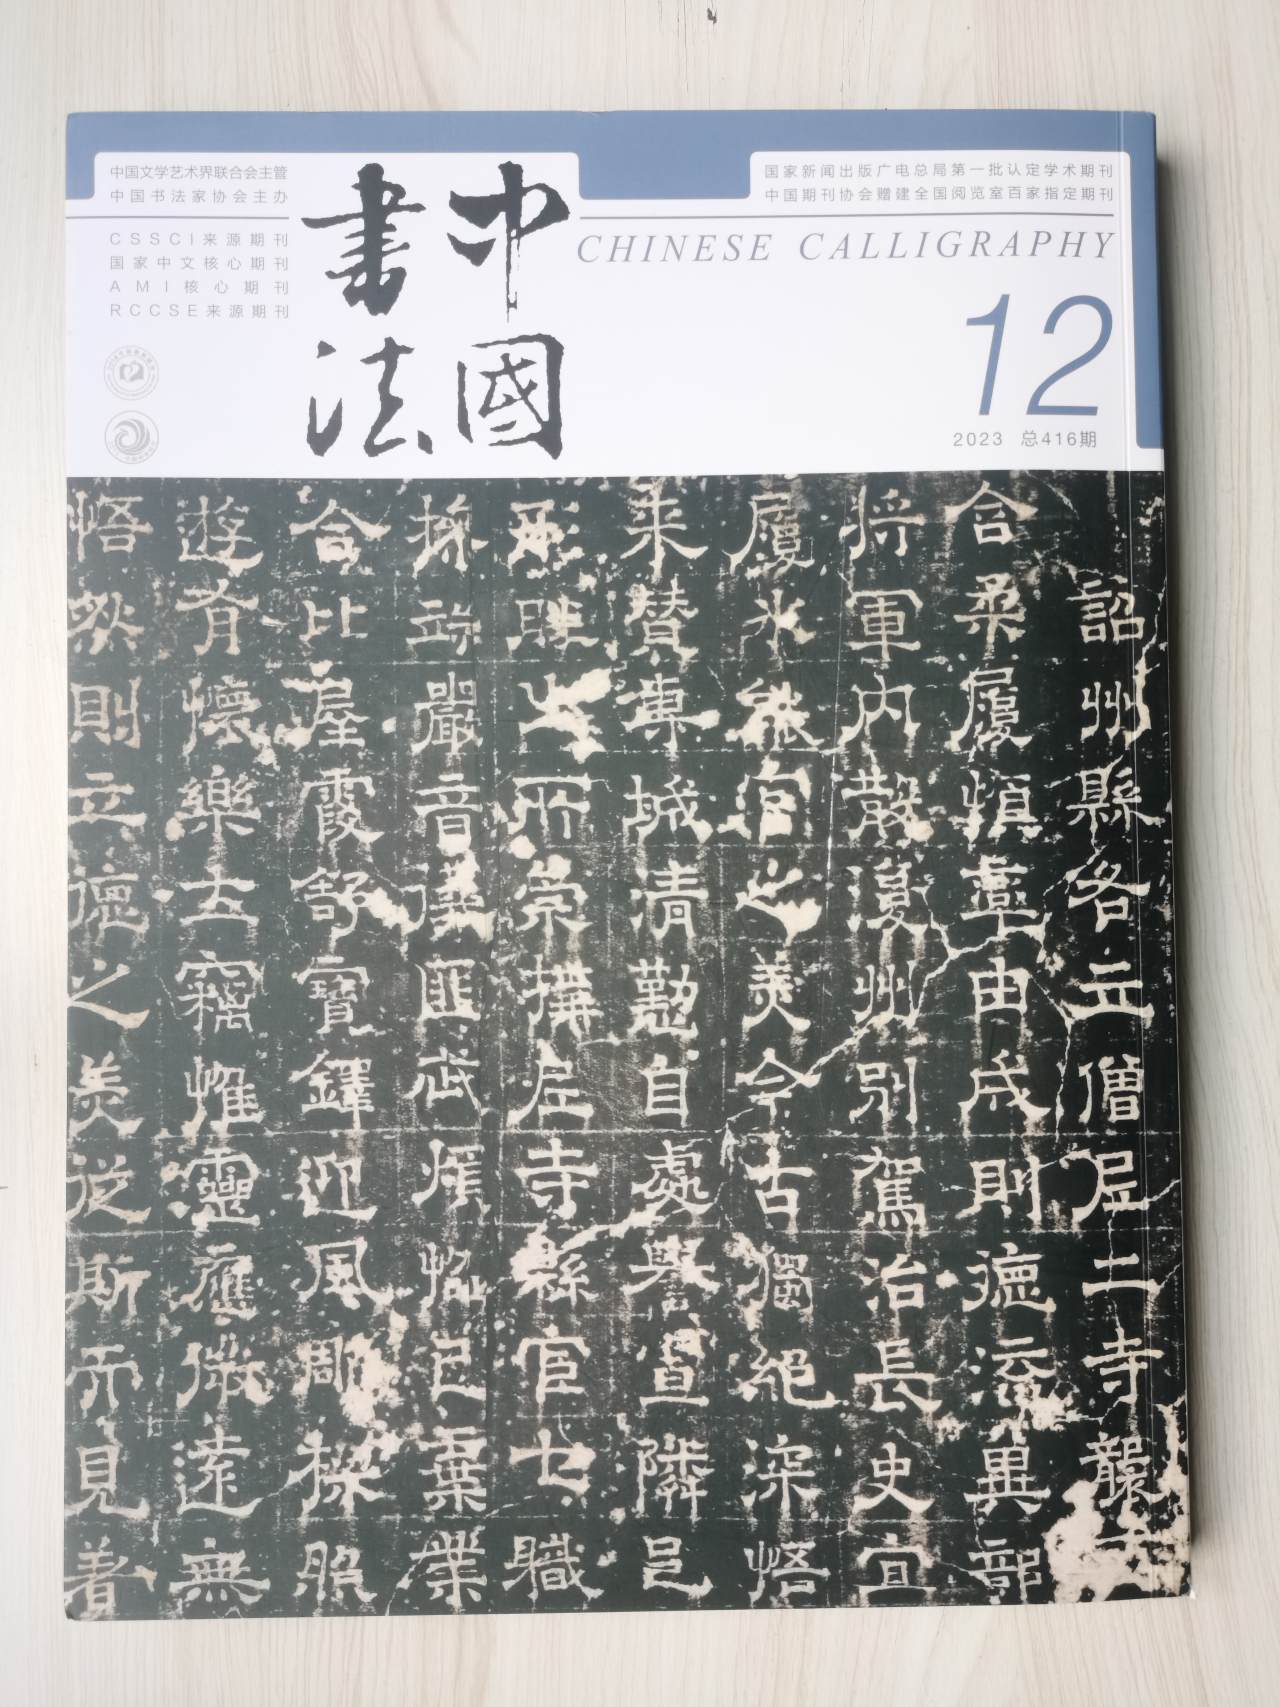 中国文学艺术界联合会主管
中国书法家协会主办
CSSCI来源期刊
国家中文核心期刊
AMI核心期刊
RCCSE来源期刊
中國
書法
国家新闻出版广电总局第一批认定学术期刊
中国期刊协会赠建全国阅览室百家指定期刊
CHINESE CALLIGRAPHY
12
2023 总416期
詔州縣各立僧尼二寺襲
合柔履慎韋由成則德流異部
将軍内散夏州別駕治長史宣
履水官之美今古獨絕深悟
来贊專城清勤自處譽宣隣邑
形勝之所崇構尼寺縣官七職
採嚴音儀匪忒已棄業
合比屋霞舒寶鐸迎風彫樑照
遊有懷樂古惟靈應微遠無
悟然則立德之美從斯而見著